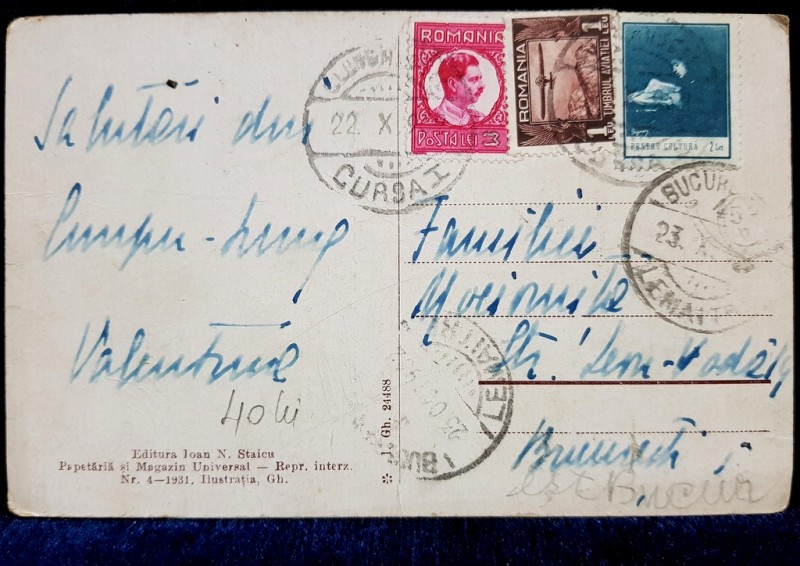 Salutări din
Câmpu-Lung
Valentina
40 lei
Editura Ioan N. Staicu
Papetărià și Magazin Universal — Repr. interz.
Nr. 4—1931. Ilustrația, Gh.
* Gh. 24488
ROMANIA
POSTA LEI 3
ROMANIA
TIMBRUL AVIATIEI
1 LEU
1 LEU
PENTRU CULTURA 2 Lei
22. X
CURSA I
BUCUR
23. X
LEMAITRE
Familiei
Mociornița
Str. Leon-Vodă
București
BUC
LEMAITRE
Bucur